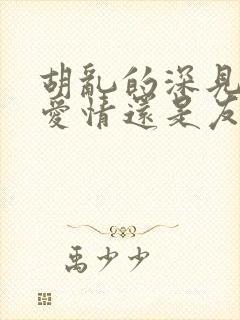 胡亂的深見
愛情還是友
禹少少